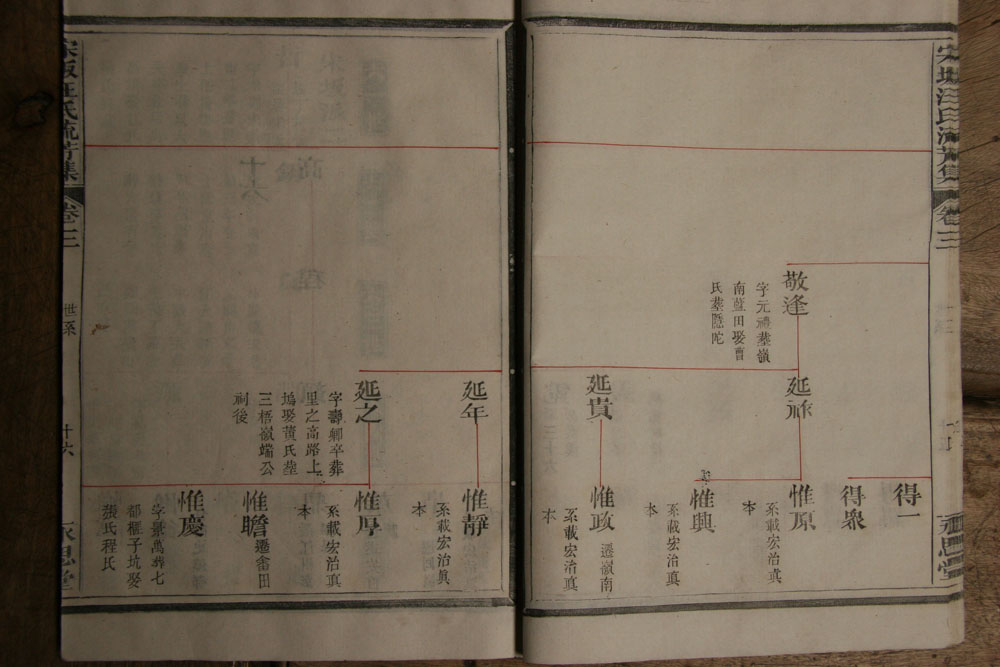 宋坂汪氏流芳集
卷三
永思堂
敬逢
字元禮塟嶺
南藍田娶曹
氏塟隠陀
延祿
延貴
得一
得衆
惟原
系載宏治眞
本
惟興
系載宏治眞
本
惟政
遷嶺南
系載宏治眞
本
延年
延之
字壽卿卒葬
里之高路上
塢娶黄氏塟
三梧嶺端公
祠後
惟靜
系載宏治眞
本
惟厚
系載宏治眞
本
惟瞻
遷畬田
惟慶
字景萬葬七
都櫃子坑娶
張氏程氏
宋坂汪氏流芳集
卷三
世系
十六
永思堂